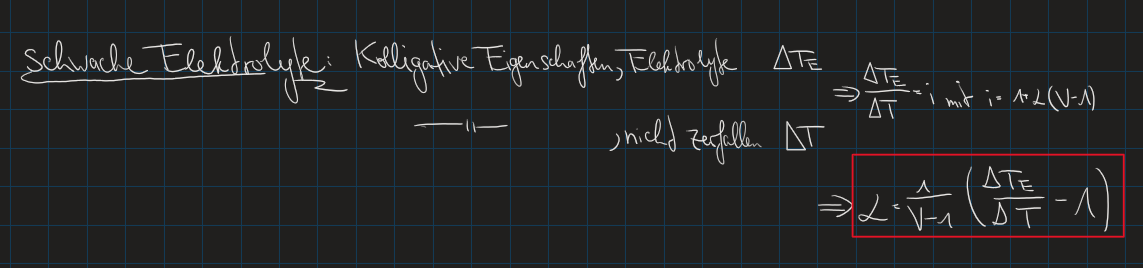 Schwache Elektrolyte: Kolligative Eigenschaften, Elektrolyte ΔT_E
—"— , nicht zerfallen ΔT
⇒ ΔT_E/ΔT = i mit i = 1+α(ν-1)
⇒ α = 1/(ν-1) (ΔT_E/ΔT - 1)